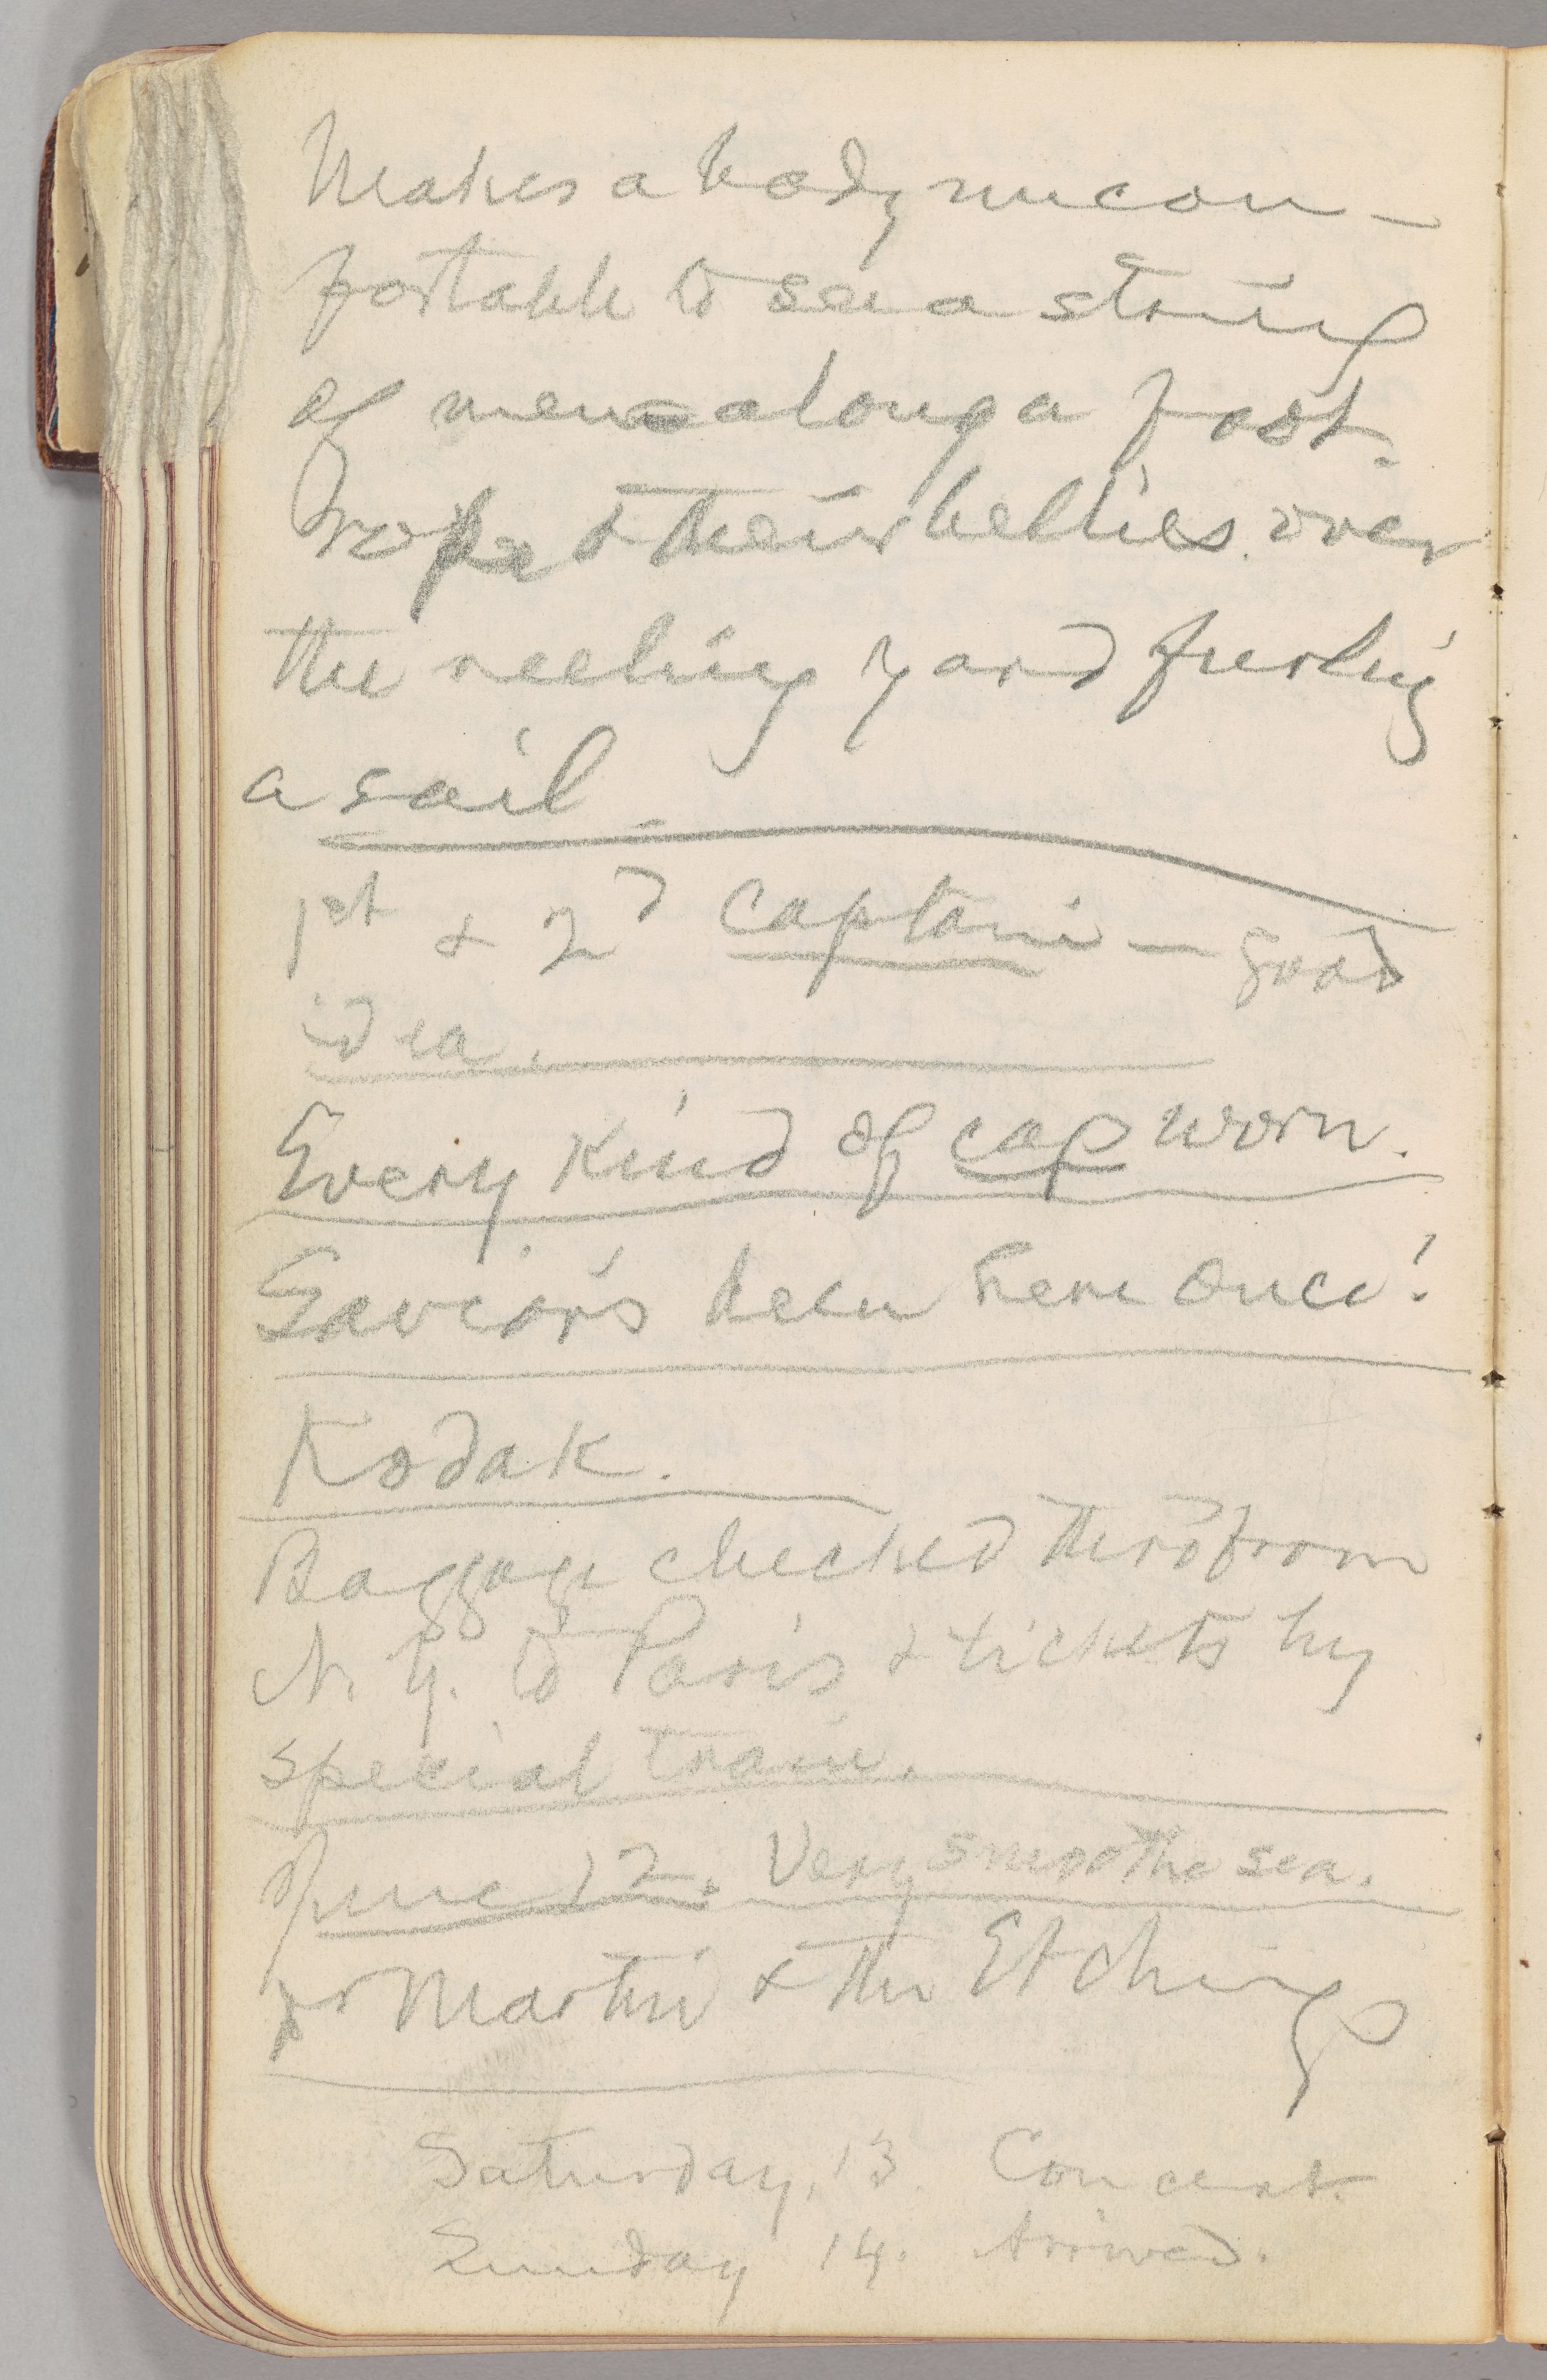 Makes a body uncom-
fortable to see a string
of men along a foot-
rope & their bellies over
the reeling yard furling
a sail
1st & 2d captain — good
idea.
Every kind of cap worn.
Savior's been here once!
Kodak.
Baggage checked thro' from
N. Y. to Paris & tickets by
special train.
June 12. Very smoothe sea.
Martin & the Etchings
Saturday, 13. Concert.
Sunday 14. Arrived.